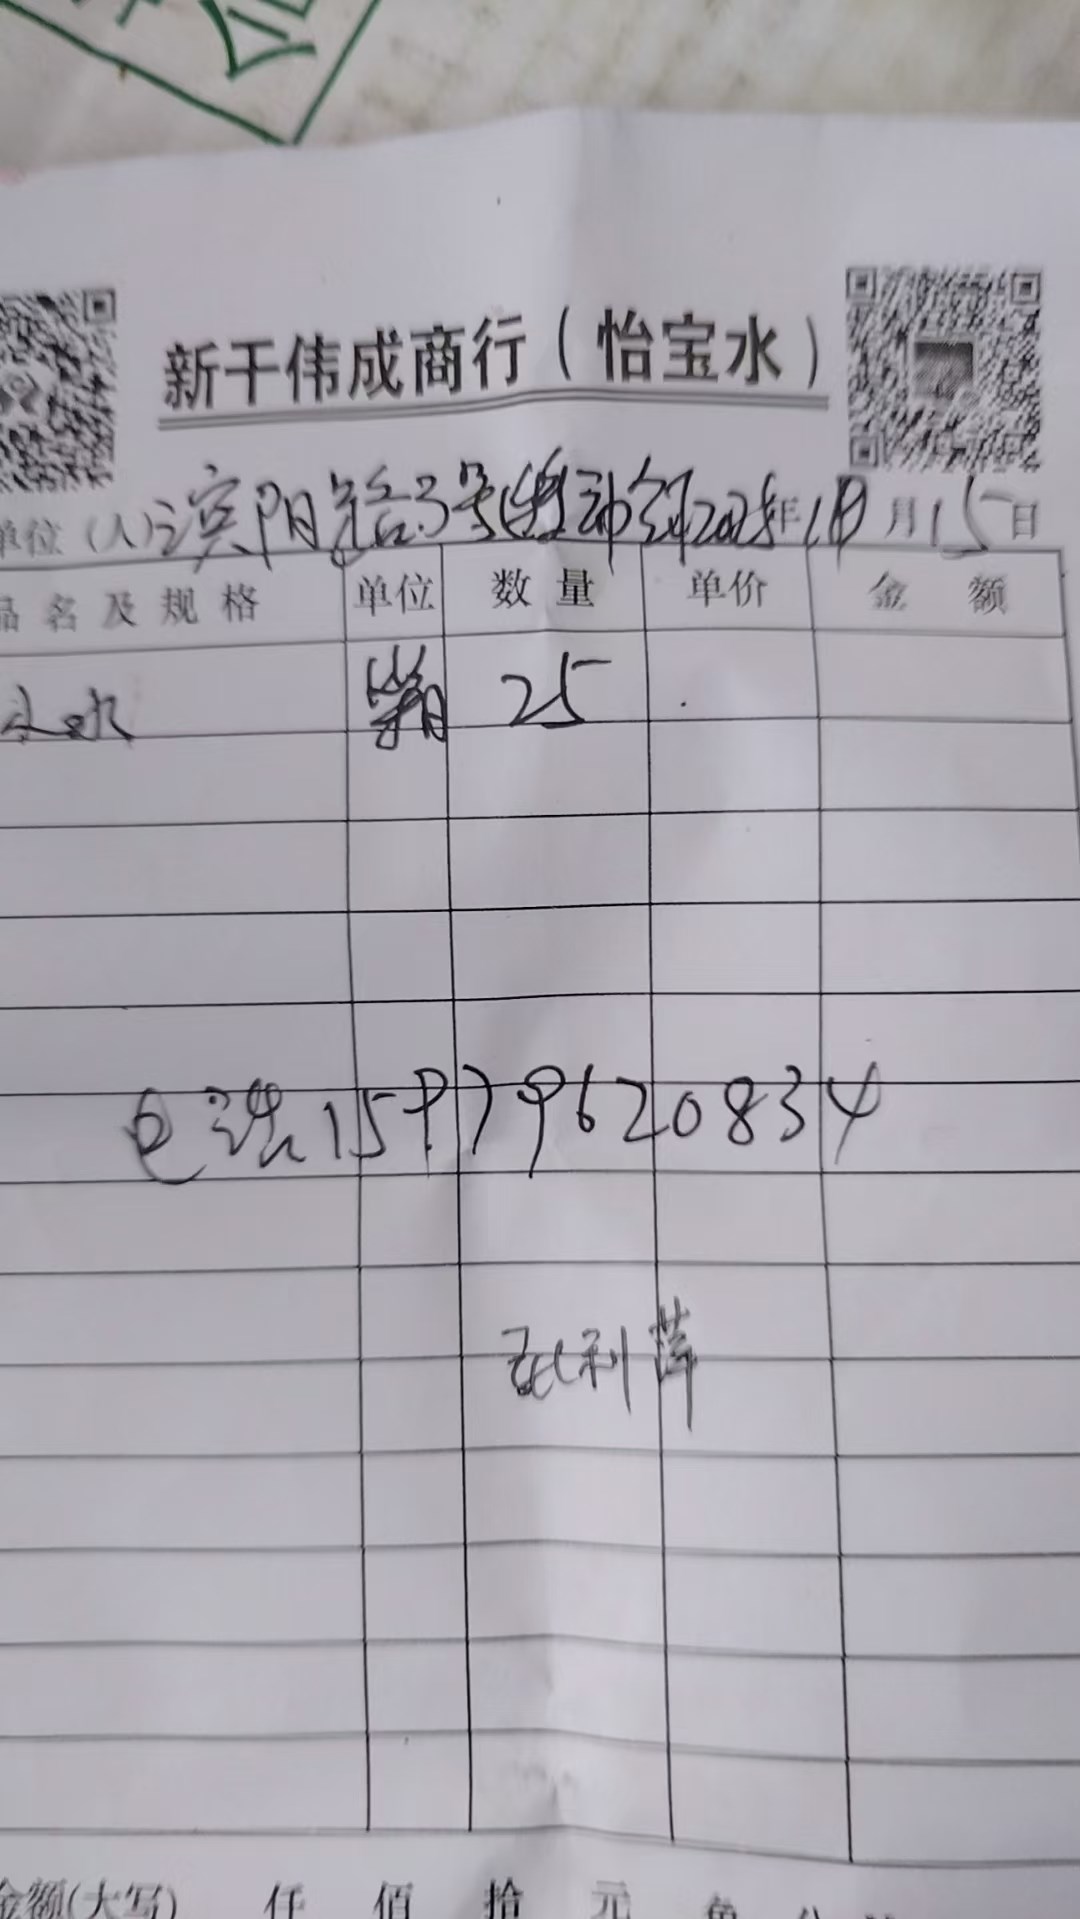 新干伟成商行（怡宝水）
单位（人）：滨阳 3号 2025年10月15日
品名及规格 单位 数量 单价 金额
水 箱 25
电话15979620834
利萍
金额(大写) 仟 佰 拾 元 角